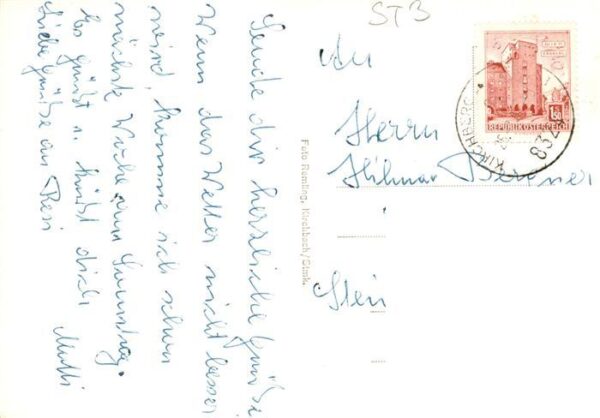 Sende dir herzliche Grüße
Wenn das Wetter nicht besser
wird, komme ich schon
nächste Woche am Samstag.
Es grüßt u. küßt dich
Mutti
Liebe Grüße an Resi
Foto Ramling, Kirchbach/Stmk.
ST3
An
Herrn
Hilmar
Stei
1.50
REPUBLIK ÖSTERREICH
KIRCHBACH
832